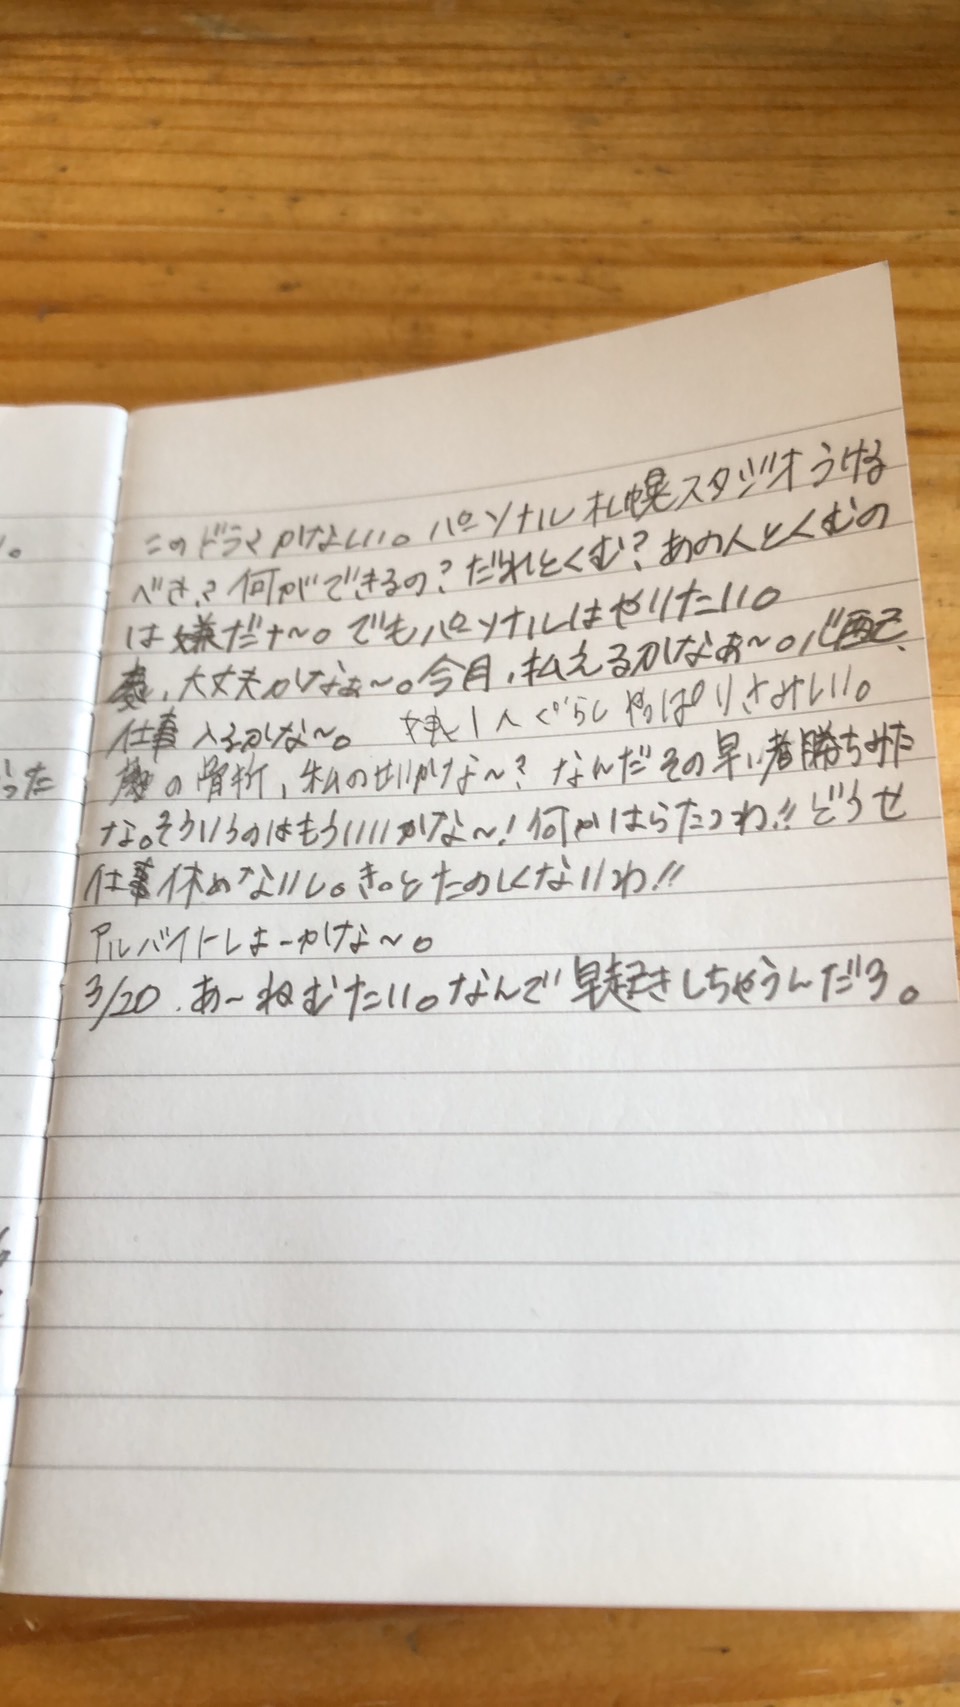 このドラマかなしい。パーソナル札幌スタジオうける
べき？何ができるの？だれとくむ？あの人とくむの
は嫌だナ〜。でもパーソナルはやりたい。
大丈夫かなぁ〜。今月、払えるかなぁ〜。心配、
仕事入るかな〜。 1人ぐらしやっぱりさみしい。
の骨折、私のせいかな〜？なんだその早い者勝ちみた
な。そういうのはもういいかな〜！何かはらたつわ!!どうせ
仕事休めないし。きっとたのしくないわ!!
アルバイトしよーかな〜。
3/20.あ〜ねむたい。なんで早起きしちゃうんだろ。
った